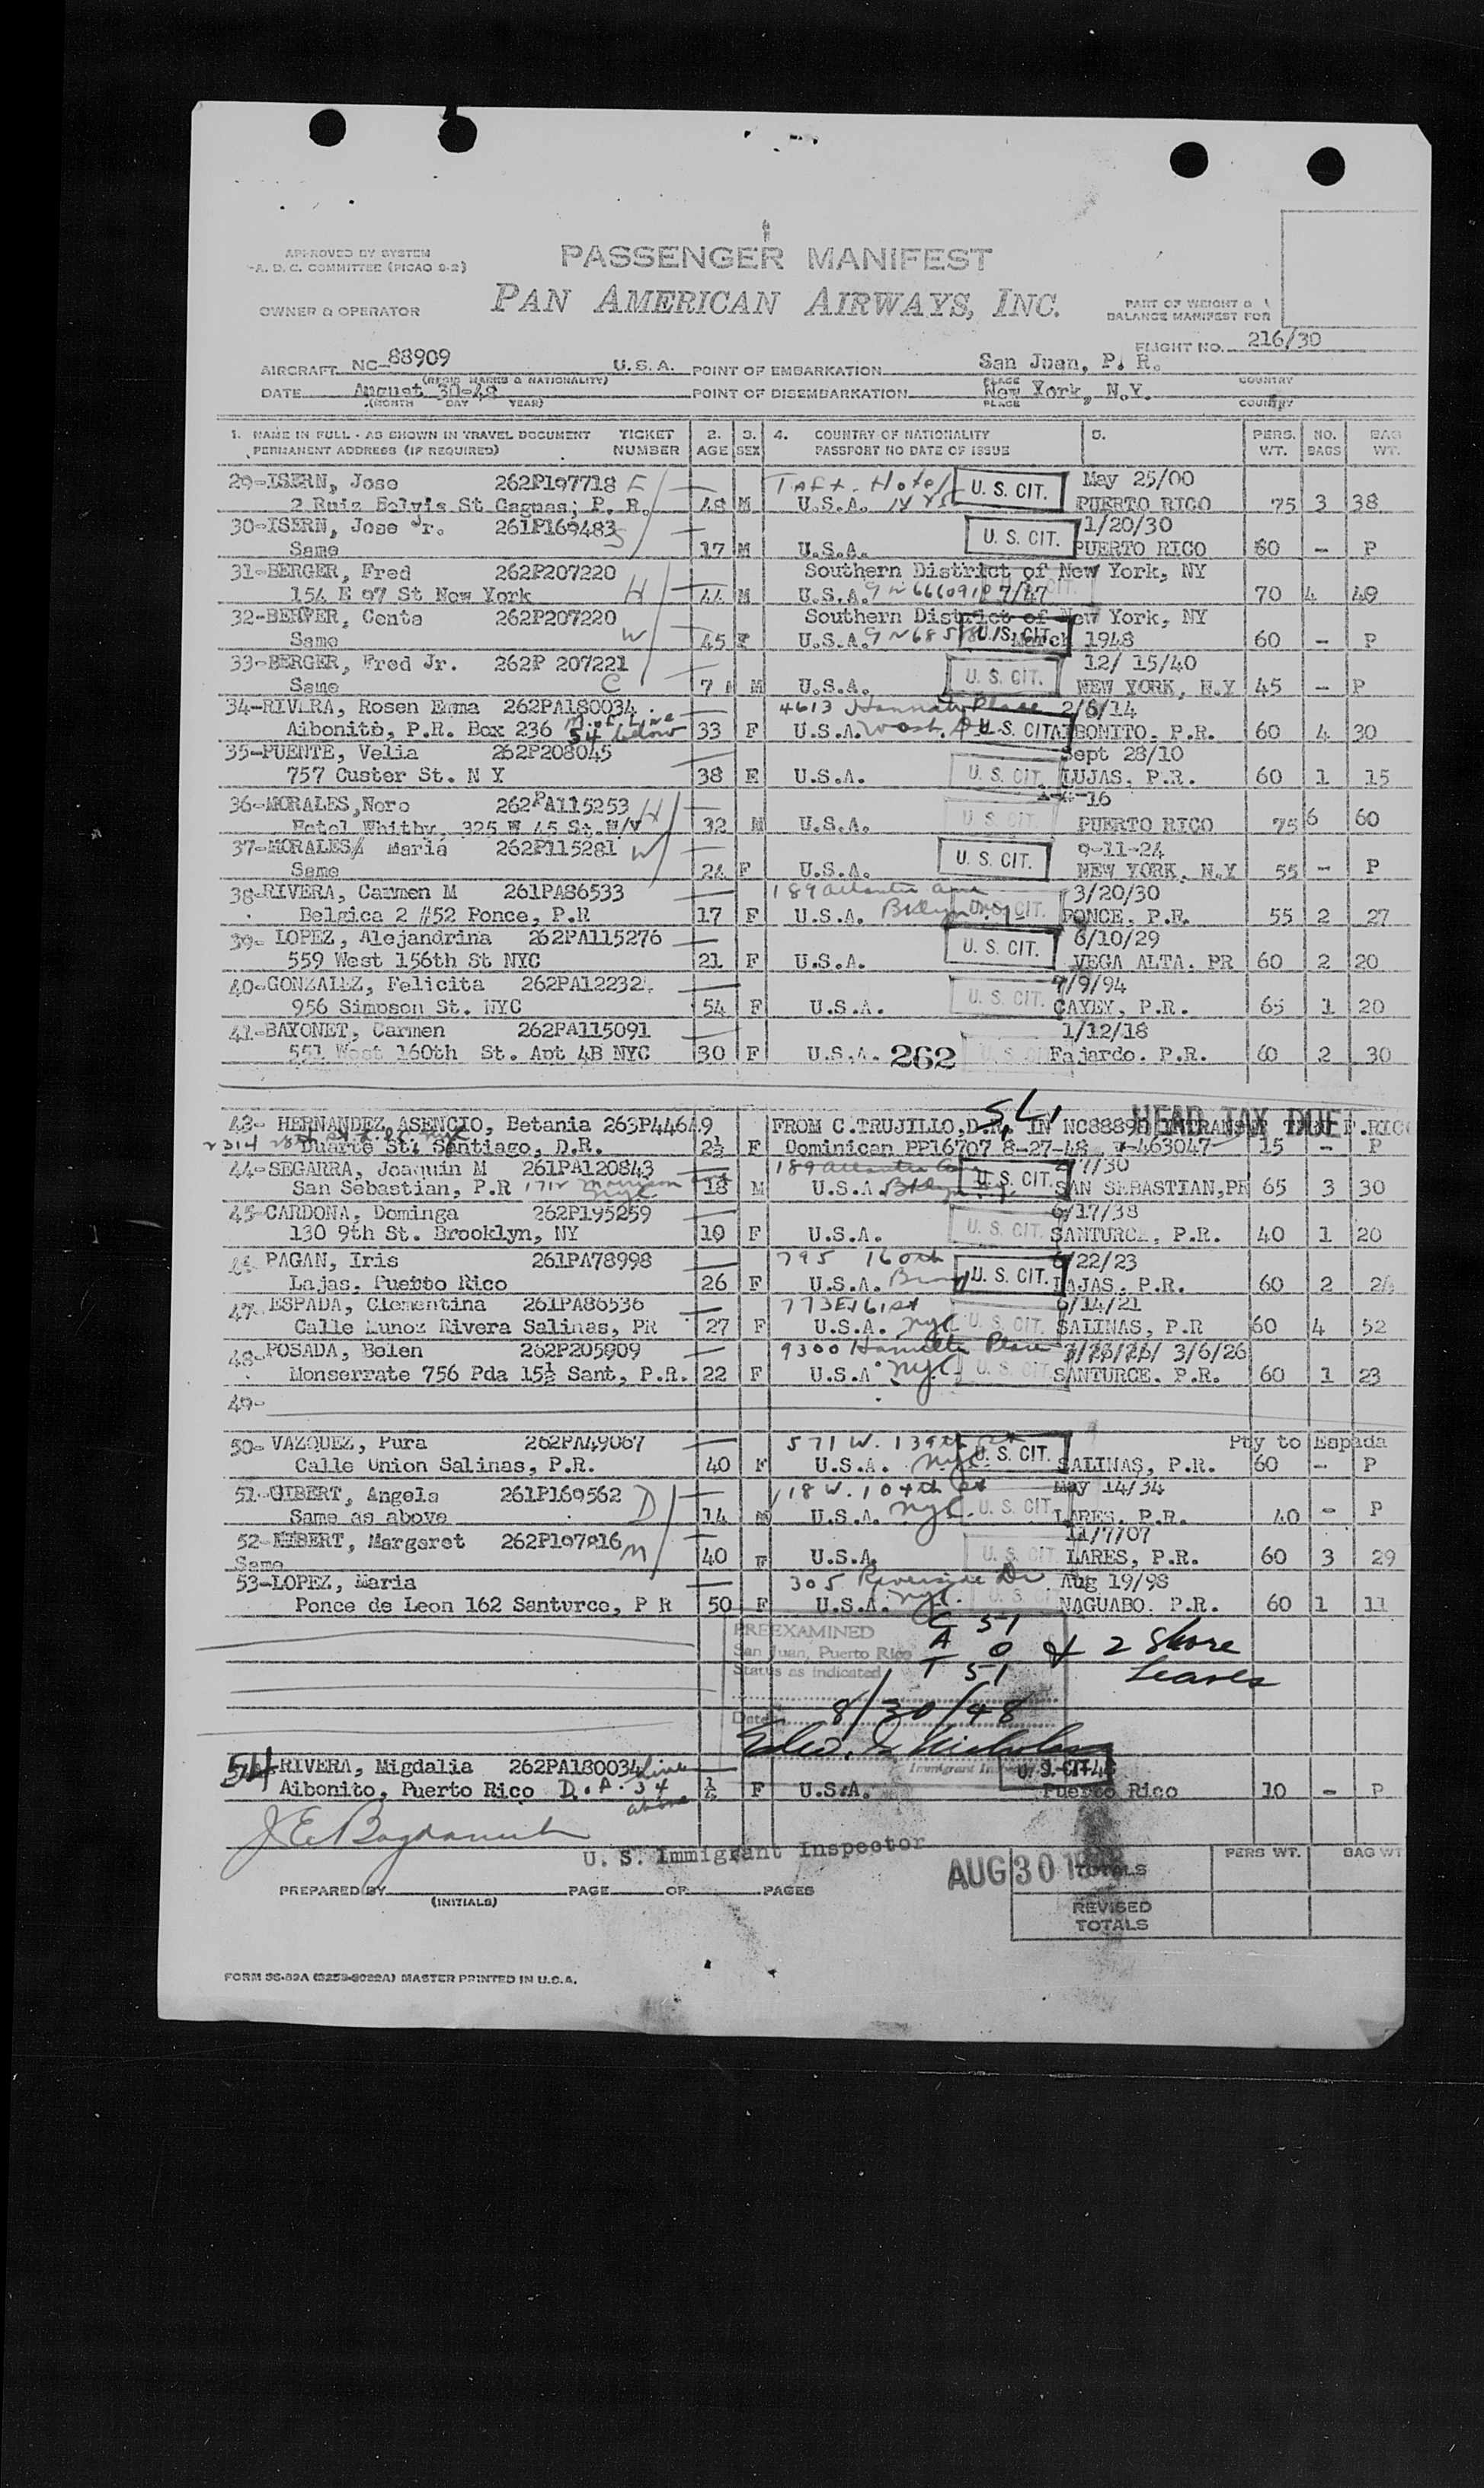 APPROVED BY SYSTEM
A. D. C. COMMITTEE (PICAO 9-2)
PASSENGER MANIFEST
OWNER & OPERATOR
PAN AMERICAN AIRWAYS, INC.
PART OF WEIGHT &
BALANCE MANIFEST FOR
FLIGHT NO. 216/30
AIRCRAFT NC-88909 U.S.A. POINT OF EMBARKATION San Juan, P. R.
(REGIS MARKS & NATIONALITY) PLACE COUNTRY
DATE August 30-48 POINT OF DISEMBARKATION New York, N.Y.
(MONTH DAY YEAR) PLACE COUNTRY
1. NAME IN FULL - AS SHOWN IN TRAVEL DOCUMENT TICKET 2. 3. 4. COUNTRY OF NATIONALITY 5. PERS. NO. BAG
PERMANENT ADDRESS (IF REQUIRED) NUMBER AGE SEX PASSPORT NO DATE OF ISSUE WT. BAGS WT.
29-ISERN, Jose 262P197718 F Taft Hotel U. S. CIT. May 25/00
2 Ruiz Belvis St Caguas; P. R. 48 M U.S.A. PUERTO RICO 75 3 38
30-ISERN, Jose Jr. 261P169483 S U. S. CIT. 1/20/30
Same 17 M U.S.A. PUERTO RICO 60 - P
31-BERGER, Fred 262P207220 Southern District of New York, NY
154 E 97 St New York H 44 M U.S.A. 7/47 70 4 49
32-BERGER, Centa 262P207220 Southern District of New York, NY
Same W 45 F U.S.A. U. S. CIT. March 1948 60 - P
33-BERGER, Fred Jr. 262P 207221 U. S. CIT. 12/ 15/40
Same C 7 M U.S.A. NEW YORK, N.Y 45 - P
34-RIVERA, Rosen Emma 262PA180034 4613 Place 2/6/14
Aibonito, P.R. Box 236 M. of Line 54 below 33 F U.S.A. Wash. U. S. CIT AIBONITO, P.R. 60 4 30
35-PUENTE, Velia 262P208045 Sept 28/10
757 Custer St. N Y 38 F U.S.A. U. S. CIT. LUJAS, P.R. 60 1 15
36-MORALES,Noro 262PA115253 H -16
Hotel Whitby, 325 W 45 St. 32 M U.S.A. U. S. CIT. PUERTO RICO 75 6 60
37-MORALES/ Maria 262P115281 W U. S. CIT. 9-11-24
Same 24 F U.S.A. NEW YORK, N.Y 55 - P
38-RIVERA, Carmen M 261PA86533 189 Atlantic Ave 3/20/30
Belgica 2 #52 Ponce, P.R 17 F U.S.A. Bklyn CIT. PONCE, P.R. 55 2 27
39- LOPEZ, Alejandrina 262PA115276 U. S. CIT. 6/10/29
559 West 156th St NYC 21 F U.S.A. VEGA ALTA. PR 60 2 20
40-GONZALEZ, Felicita 262PA12232 U. S. CIT. 7/9/94
956 Simpson St. NYC 54 F U.S.A. CAYEY, P.R. 65 1 20
41-BAYONET, Carmen 262PA115091 1/12/18
551 West 160th St. Apt 4B NYC 30 F U.S.A. 262 Fajardo. P.R. 60 2 30
43- HERNANDEZ ASENCIO, Betania 263P44649 FROM C.TRUJILLO,D.R. IN NC88890 HEAD TAX DUE
Duarte St. Santiago, D.R. 2½ F Dominican PP16707 8-27-48 463047 15 - P
44-SEGARRA, Joaquin M 261PA120843 189 Atlantic U. S. CIT. 7/30
San Sebastian, P.R 18 M U.S.A. Bklyn SAN SEBASTIAN,PR 65 3 30
45-CARDONA, Dominga 262P195259 6/17/38
130 9th St. Brooklyn, NY 10 F U.S.A. U. S. CIT. SANTURCE, P.R. 40 1 20
PAGAN, Iris 261PA78998 795 160th 6/22/23
Lajas, Puerto Rico 26 F U.S.A. Bronx U. S. CIT. LAJAS, P.R. 60 2
47- ESPADA, Clementina 261PA86536 773 E 161 st 6/14/21
Calle Munoz Rivera Salinas, PR 27 F U.S.A. NYC U. S. CIT. SALINAS, P.R 60 4 52
48-POSADA, Belen 262P205909 9300 Hamilton Place 3/6/26
Monserrate 756 Pda 15½ Sant, P.R. 22 F U.S.A NYC U. S. CIT SANTURCE. P.R. 60 1 23
49-
50- VAZQUEZ, Pura 262PA49067 571 W. 139th st U. S. CIT. Pty to Espada
Calle Union Salinas, P.R. 40 F U.S.A. NYC SALINAS, P.R. 60 - P
51-GIBERT, Angela 261P169562 D 118 W. 104th st May 14/34
Same as above 14 U.S.A. NYC U. S. CIT LARES. P.R. 40 - P
52- Margaret 262P197816 M 11/7/07
Same 40 F U.S.A. U. S. CIT LARES, P.R. 60 3 29
53-LOPEZ, Maria 305 Riverside Dr Aug 19/98
Ponce de Leon 162 Santurce, P R 50 F U.S.A. NYC. NAGUABO. P.R. 60 1 11
PREEXAMINED C 51
San Juan, Puerto Rico A 0 & 2 Shore
Status as indicated T 51 Leaves
Date 8/30/48
54 RIVERA, Migdalia 262PA180034 Line
Aibonito, Puerto Rico D. A. 34 above ½ F U.S.A. U. S. CIT Puerto Rico 10 - P
U. S. Immigrant Inspector
AUG 30 TOTALS PERS WT. BAG WT
PREPARED BY PAGE OF PAGES
(INITIALS)
REVISED
TOTALS
MASTER PRINTED IN U.S.A.